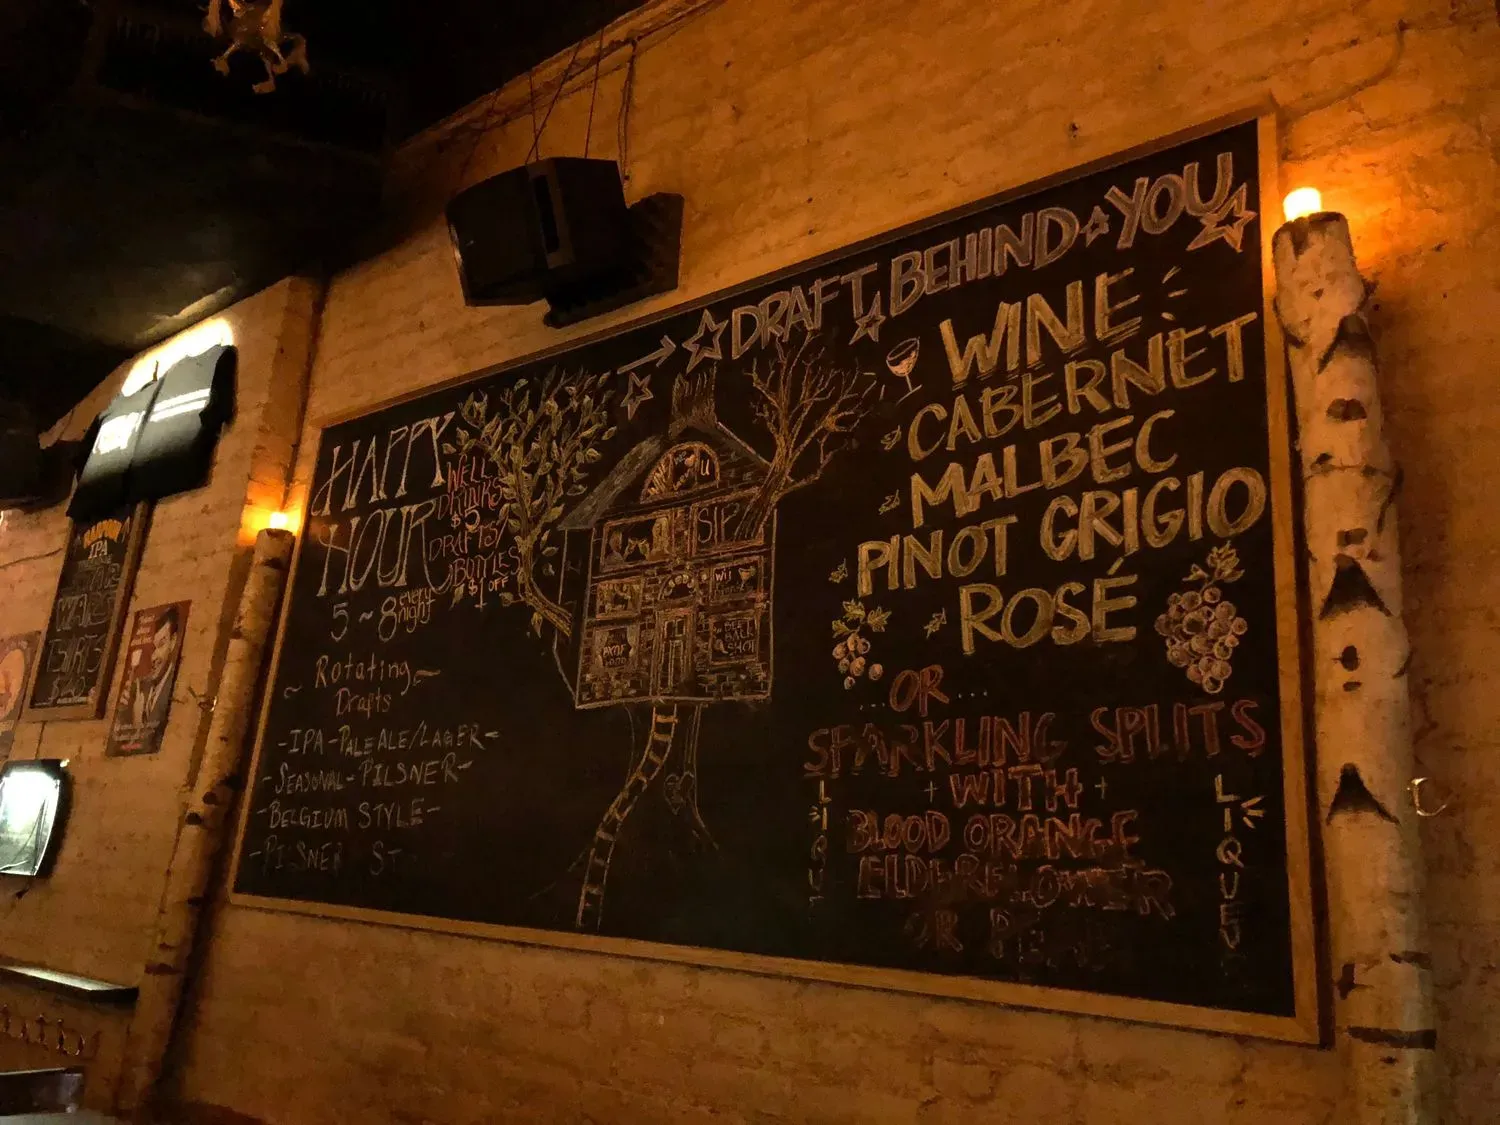 DRAFT BEHIND YOU
HAPPY
HOUR
5 ~ 8 every
night
WELL
DRINKS
$5
DRAFTS/
BOTTLES
$1 OFF
~ Rotating ~
Drafts
-IPA-PALE ALE/LAGER-
-SEASONAL-PILSNER-
-BELGIUM STYLE-
-PILSNER ST
SIP
WINE
CABERNET
MALBEC
PINOT GRIGIO
ROSÉ
...OR...
SPARKLING SPLITS
+WITH+
BLOOD ORANGE
ELDERFLOWER
OR
LIQU
LIQUEU
IPA